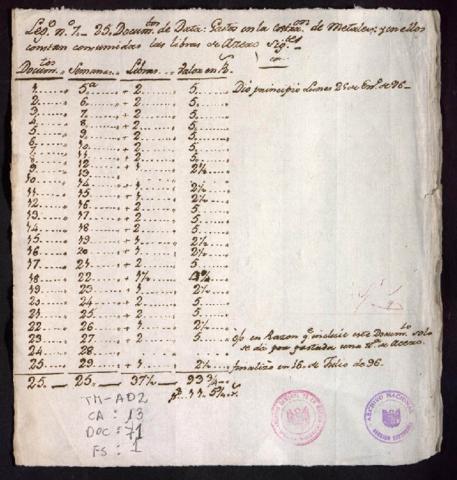 Leg.o n.o 7.— 25. Docum.tos de Data: Gasto en la de Metales; y en ellos
constan consumidas las libras de Azero Sig.tes
Docum.tos Semanas.. Libras.. Valor en
1....... 5a...... + 2....... 5....... Dio principio Lunes 25 de En.o de 96—
2....... 6....... + 2....... 5.......
3....... 7....... + 2....... 5.......
4....... 8....... + 2....... 5.......
5....... 9....... + 2....... 5.......
6....... 10...... + 2....... 5.......
7....... 11...... + 2....... 5.......
8....... 12...... + 1....... 2½......
9....... 13......
10...... 14...... + 1....... 2½......
11...... 15...... + 1....... 2½......
12...... 16...... + 2....... 5.......
13...... 17...... + 2....... 5.......
14...... 18...... + 2....... 5.......
15...... 19...... + 1....... 2½......
16...... 20...... + 1....... 2½......
17...... 21...... + 2....... 5.......
18...... 22...... + 1½...... 3¾......
19...... 23...... + 1....... 2½......
20...... 24...... + 2....... 5.......
21...... 25...... + 2....... 5.......
22...... 26...... + 1....... 2½......
23...... 27...... + 2....... 5....... en Razon q.e incluir este Docum.to solo
24...... 28...... se da por gastada una de Azero.
25...... 29...... + 1....... 2½...... finalizo en 16. de Julio de 96.
25.— 25.— 37½— 93¾—
11. 5¾ r.s
TM-AD2
CA : 13
DOC : 71
FS : 1
ARCHIVO NACIONAL